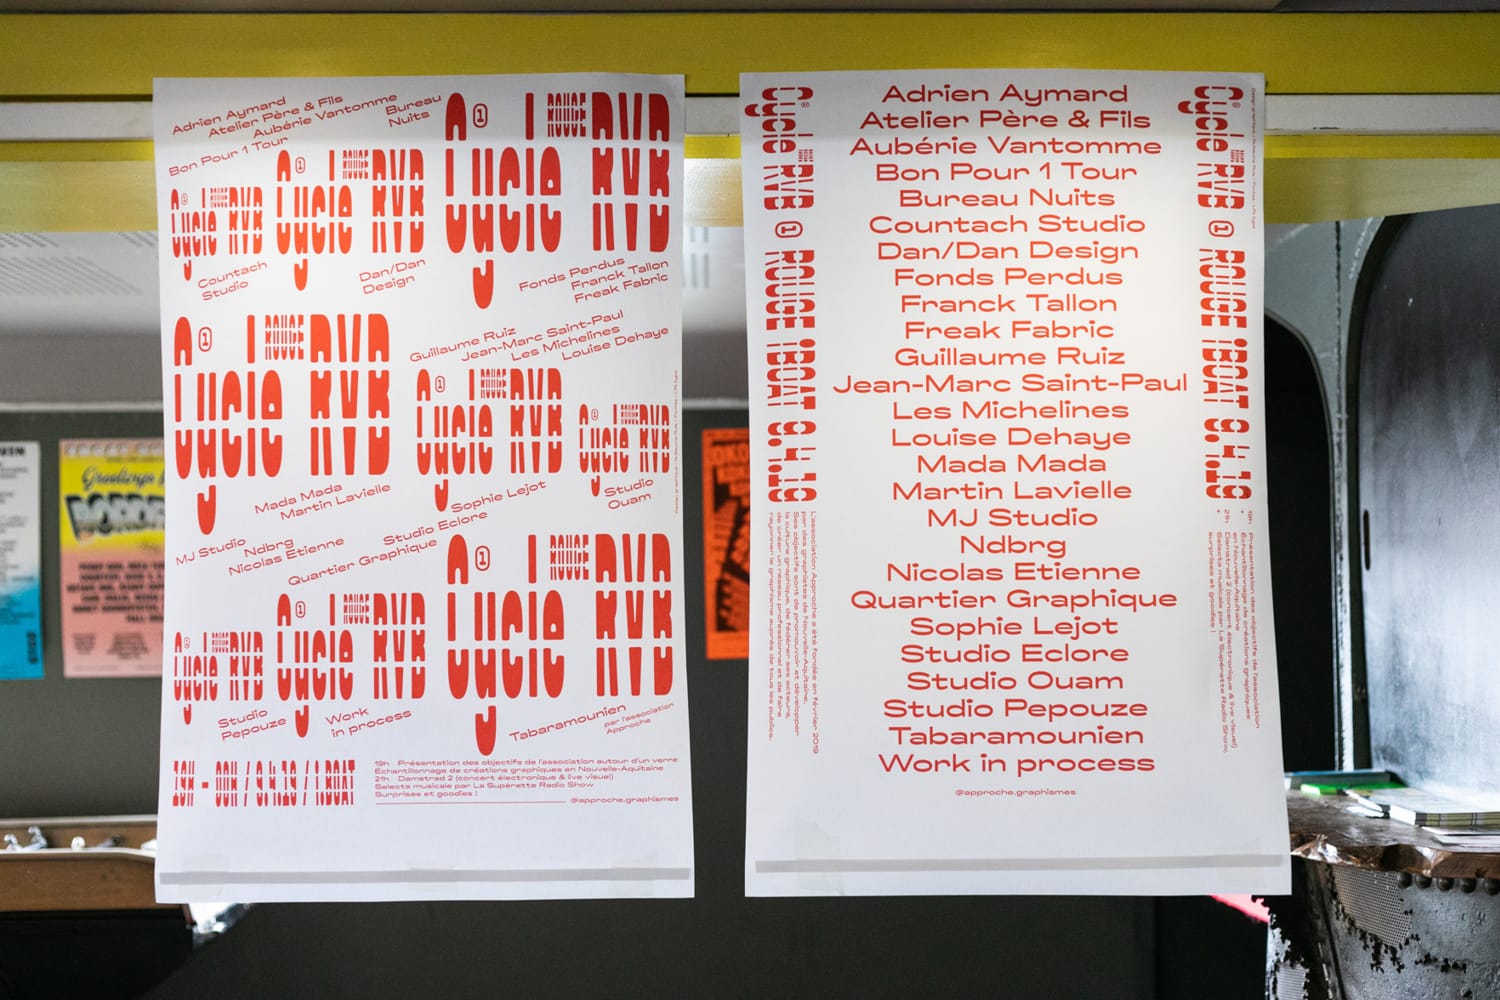 Adrien Aymard
Atelier Père & Fils
Aubérie Vantomme
Bureau
Nuits
Bon Pour 1 Tour
Cycle 1 ROUGE RVB
Cycle 1 ROUGE RVB
Cycle 1 ROUGE RVB
Countach
Studio
Dan/Dan
Design
Fonds Perdus
Franck Tallon
Freak Fabric
Cycle 1 ROUGE RVB
Guillaume Ruiz
Jean-Marc Saint-Paul
Les Michelines
Louise Dehaye
Cycle 1 ROUGE RVB
Cycle 1 ROUGE RVB
Mada Mada
Martin Lavielle
Sophie Lejot
Studio
Ouam
MJ Studio
Ndbrg
Nicolas Etienne
Studio Eclore
Quartier Graphique
Cycle 1 ROUGE RVB
Cycle 1 ROUGE RVB
Cycle 1 ROUGE RVB
Studio
Pepouze
Work
in process
Tabaramounien
par l'association
Approche
19H – 00H / 9.4.19 / I.BOAT
19h Présentation des objectifs de l'association autour d'un verre
Échantillonnage de créations graphiques en Nouvelle-Aquitaine
21h Damstrad 2 (concert électronique & live visuel)
Selecta musicale par La Supérette Radio Show
Surprises et goodies !
@approche.graphismes
Cycle 1 ROUGE RVB 1 ROUGE I.BOAT 9.4.19
L'association Approche a été fondée en février 2019
par des graphistes de Nouvelle-Aquitaine.
Ses objectifs sont de promouvoir et développer
la culture graphique, de fédérer ses acteurs,
de créer un réseau professionnel et de faire
rayonner le graphisme auprès de tous les publics.
Adrien Aymard
Atelier Père & Fils
Aubérie Vantomme
Bon Pour 1 Tour
Bureau Nuits
Countach Studio
Dan/Dan Design
Fonds Perdus
Franck Tallon
Freak Fabric
Guillaume Ruiz
Jean-Marc Saint-Paul
Les Michelines
Louise Dehaye
Mada Mada
Martin Lavielle
MJ Studio
Ndbrg
Nicolas Etienne
Quartier Graphique
Sophie Lejot
Studio Eclore
Studio Ouam
Studio Pepouze
Tabaramounien
Work in process
@approche.graphismes
Cycle 1 ROUGE RVB 1 ROUGE I.BOAT 9.4.19
19h Présentation des objectifs de l'association
+ Échantillonnage de créations graphiques
en Nouvelle-Aquitaine
21h Damstrad 2 (concert électronique & live visuel)
+ Selecta musicale par La Supérette Radio Show,
surprises et goodies !
Greetings